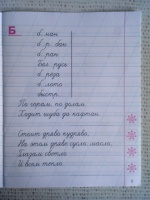 Б
б нан
б р бан
б ран
Бел русь
б рёза
б лото
быстр
По горам, по долам
Ходит шуба да кафтан.
Стоит древо кудряво,
На этом древе сука мало,
Глазам светло
И всем тепло.